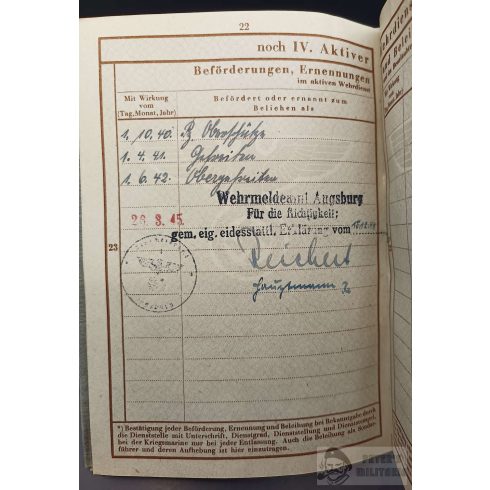 22
noch IV. Aktiver
Beförderungen, Ernennungen
im aktiven Wehrdienst
Mit Wirkung
vom
(Tag, Monat, Jahr)
Befördert oder ernannt zum
Beliehen als
1. 10. 40. Oberschütze
1. 4. 41. Gefreiten
1. 6. 42. Obergefreiten
Wehrmeldeamt Augsburg
Für die Richtigkeit:
26. 3. 45.
gem. eig. eidesstattl. Erklärung vom
23
Reichert
Hauptmann
*) Bestätigung jeder Beförderung, Ernennung und Beleihung bei Bekanntgabe durch
die Dienststelle mit Unterschrift, Dienstgrad, Dienststellung und Dienststempel,
bei der Kriegsmarine nur bei jeder Entlassung. Auch die Beleihung als Sonder-
führer und deren Aufhebung ist hier einzutragen.
PETER'S